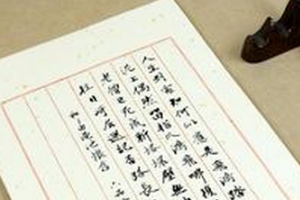 人生到處知何似應是飛鴻踏
泥上偶然留指爪鴻飛那復
老僧已死成新塔壞壁無
往日崎嶇還記否路長
和子由澠池懷舊